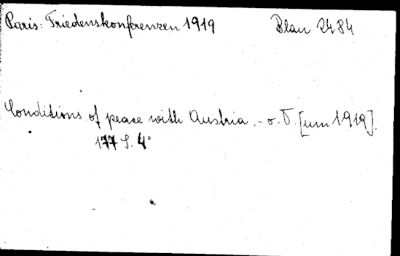 Paris: Friedenskonferenzen 1919 Blau 2484
Conditions of peace with Austria. - o. O. [um 1919].
177 S. 4°